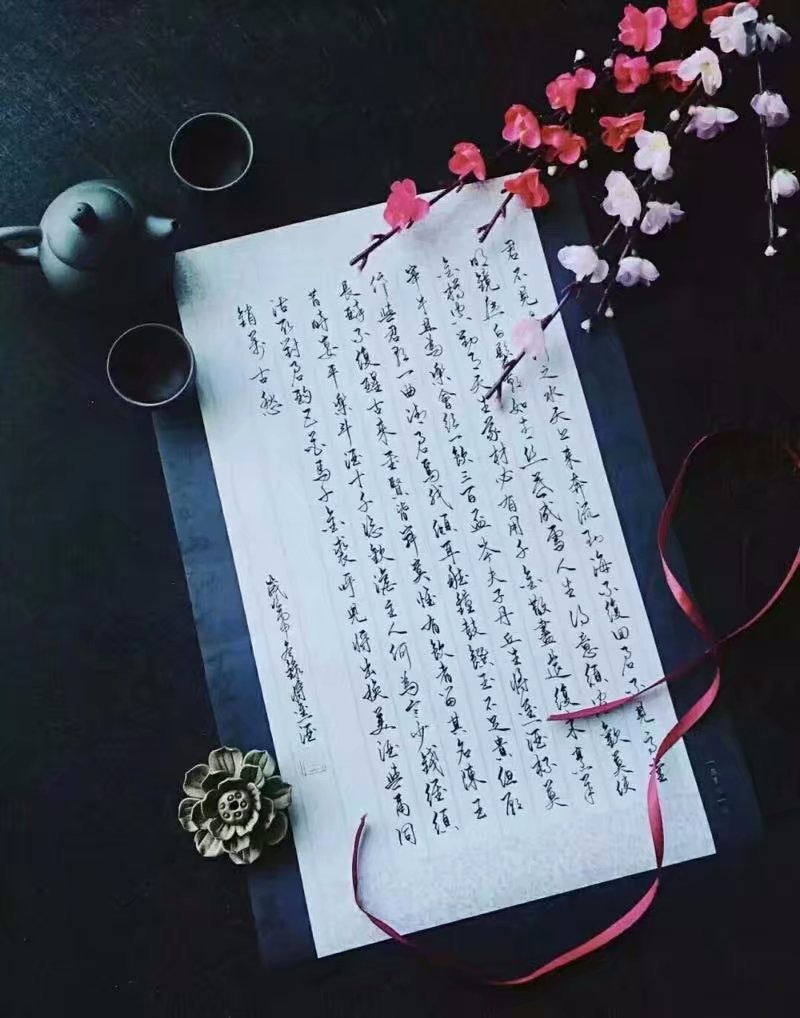 君不見之水天上來奔流到海不復回君不見高堂
明鏡悲白髮如青丝暮成雪人生得意須歡莫使
金樽空對月天生我材必有用千金散盡還復來烹羊
宰牛且為樂會須一飲三百盃岑夫子丹丘生將進酒杯莫
停與君歌一曲請君為我傾耳聽鐘鼓饌玉不足貴但願
長醉不復醒古來聖賢皆寂寞惟有飲者留其名陳王
昔時宴平樂斗酒十千恣歡謔主人何為言少錢徑須
沽取對君酌五花馬千金裘呼兒將出換美酒與爾同
銷萬古愁
歲冬錄將進酒